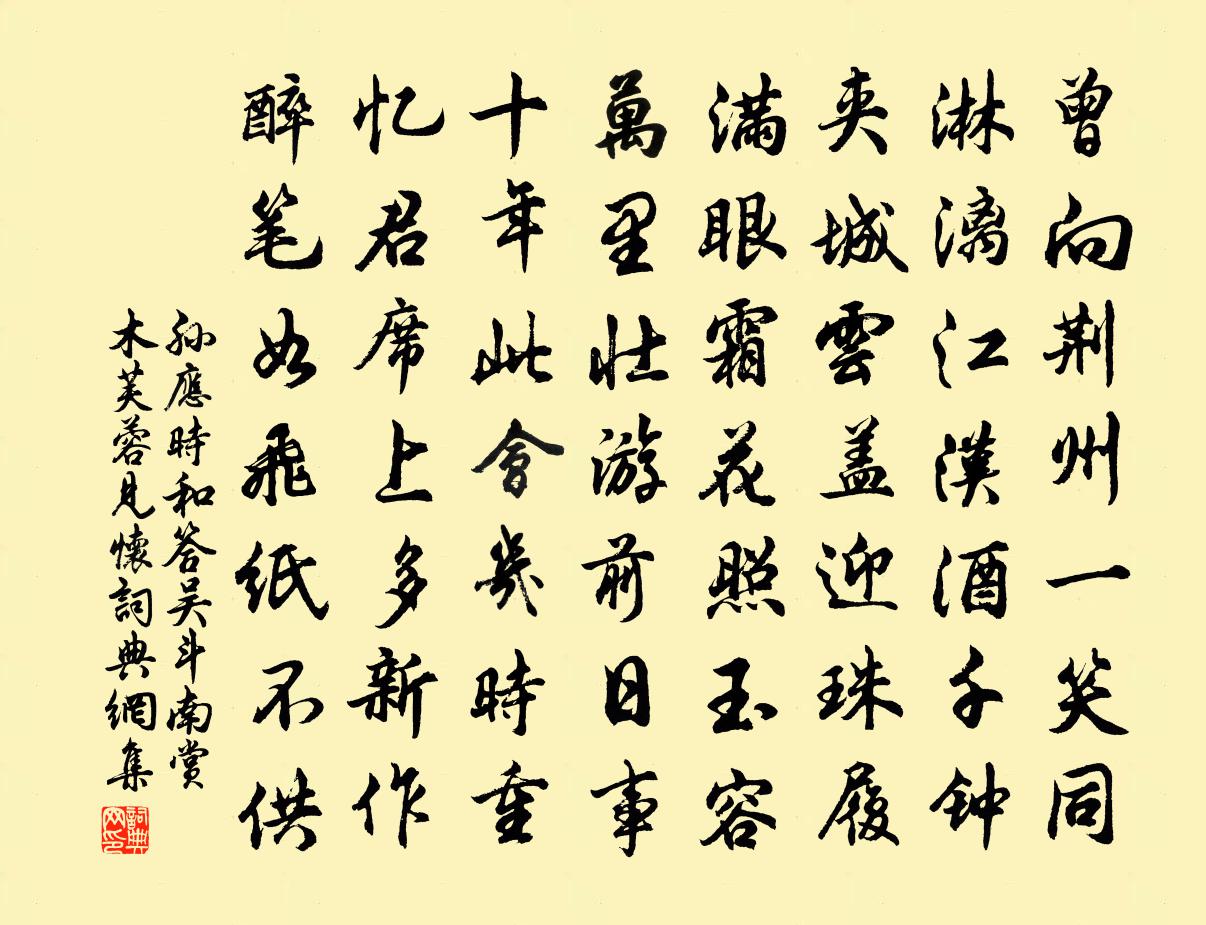 曾向荆州一笑同
淋漓江漢酒千钟
夹城雲盖迎珠履
满眼霜花照玉容
萬里壮游前日事
十年此會幾時重
忆君席上多新作
醉笔如飛紙不供
孫應時和答吴斗南赏
木芙蓉見懷詞典網集
詞典
网印